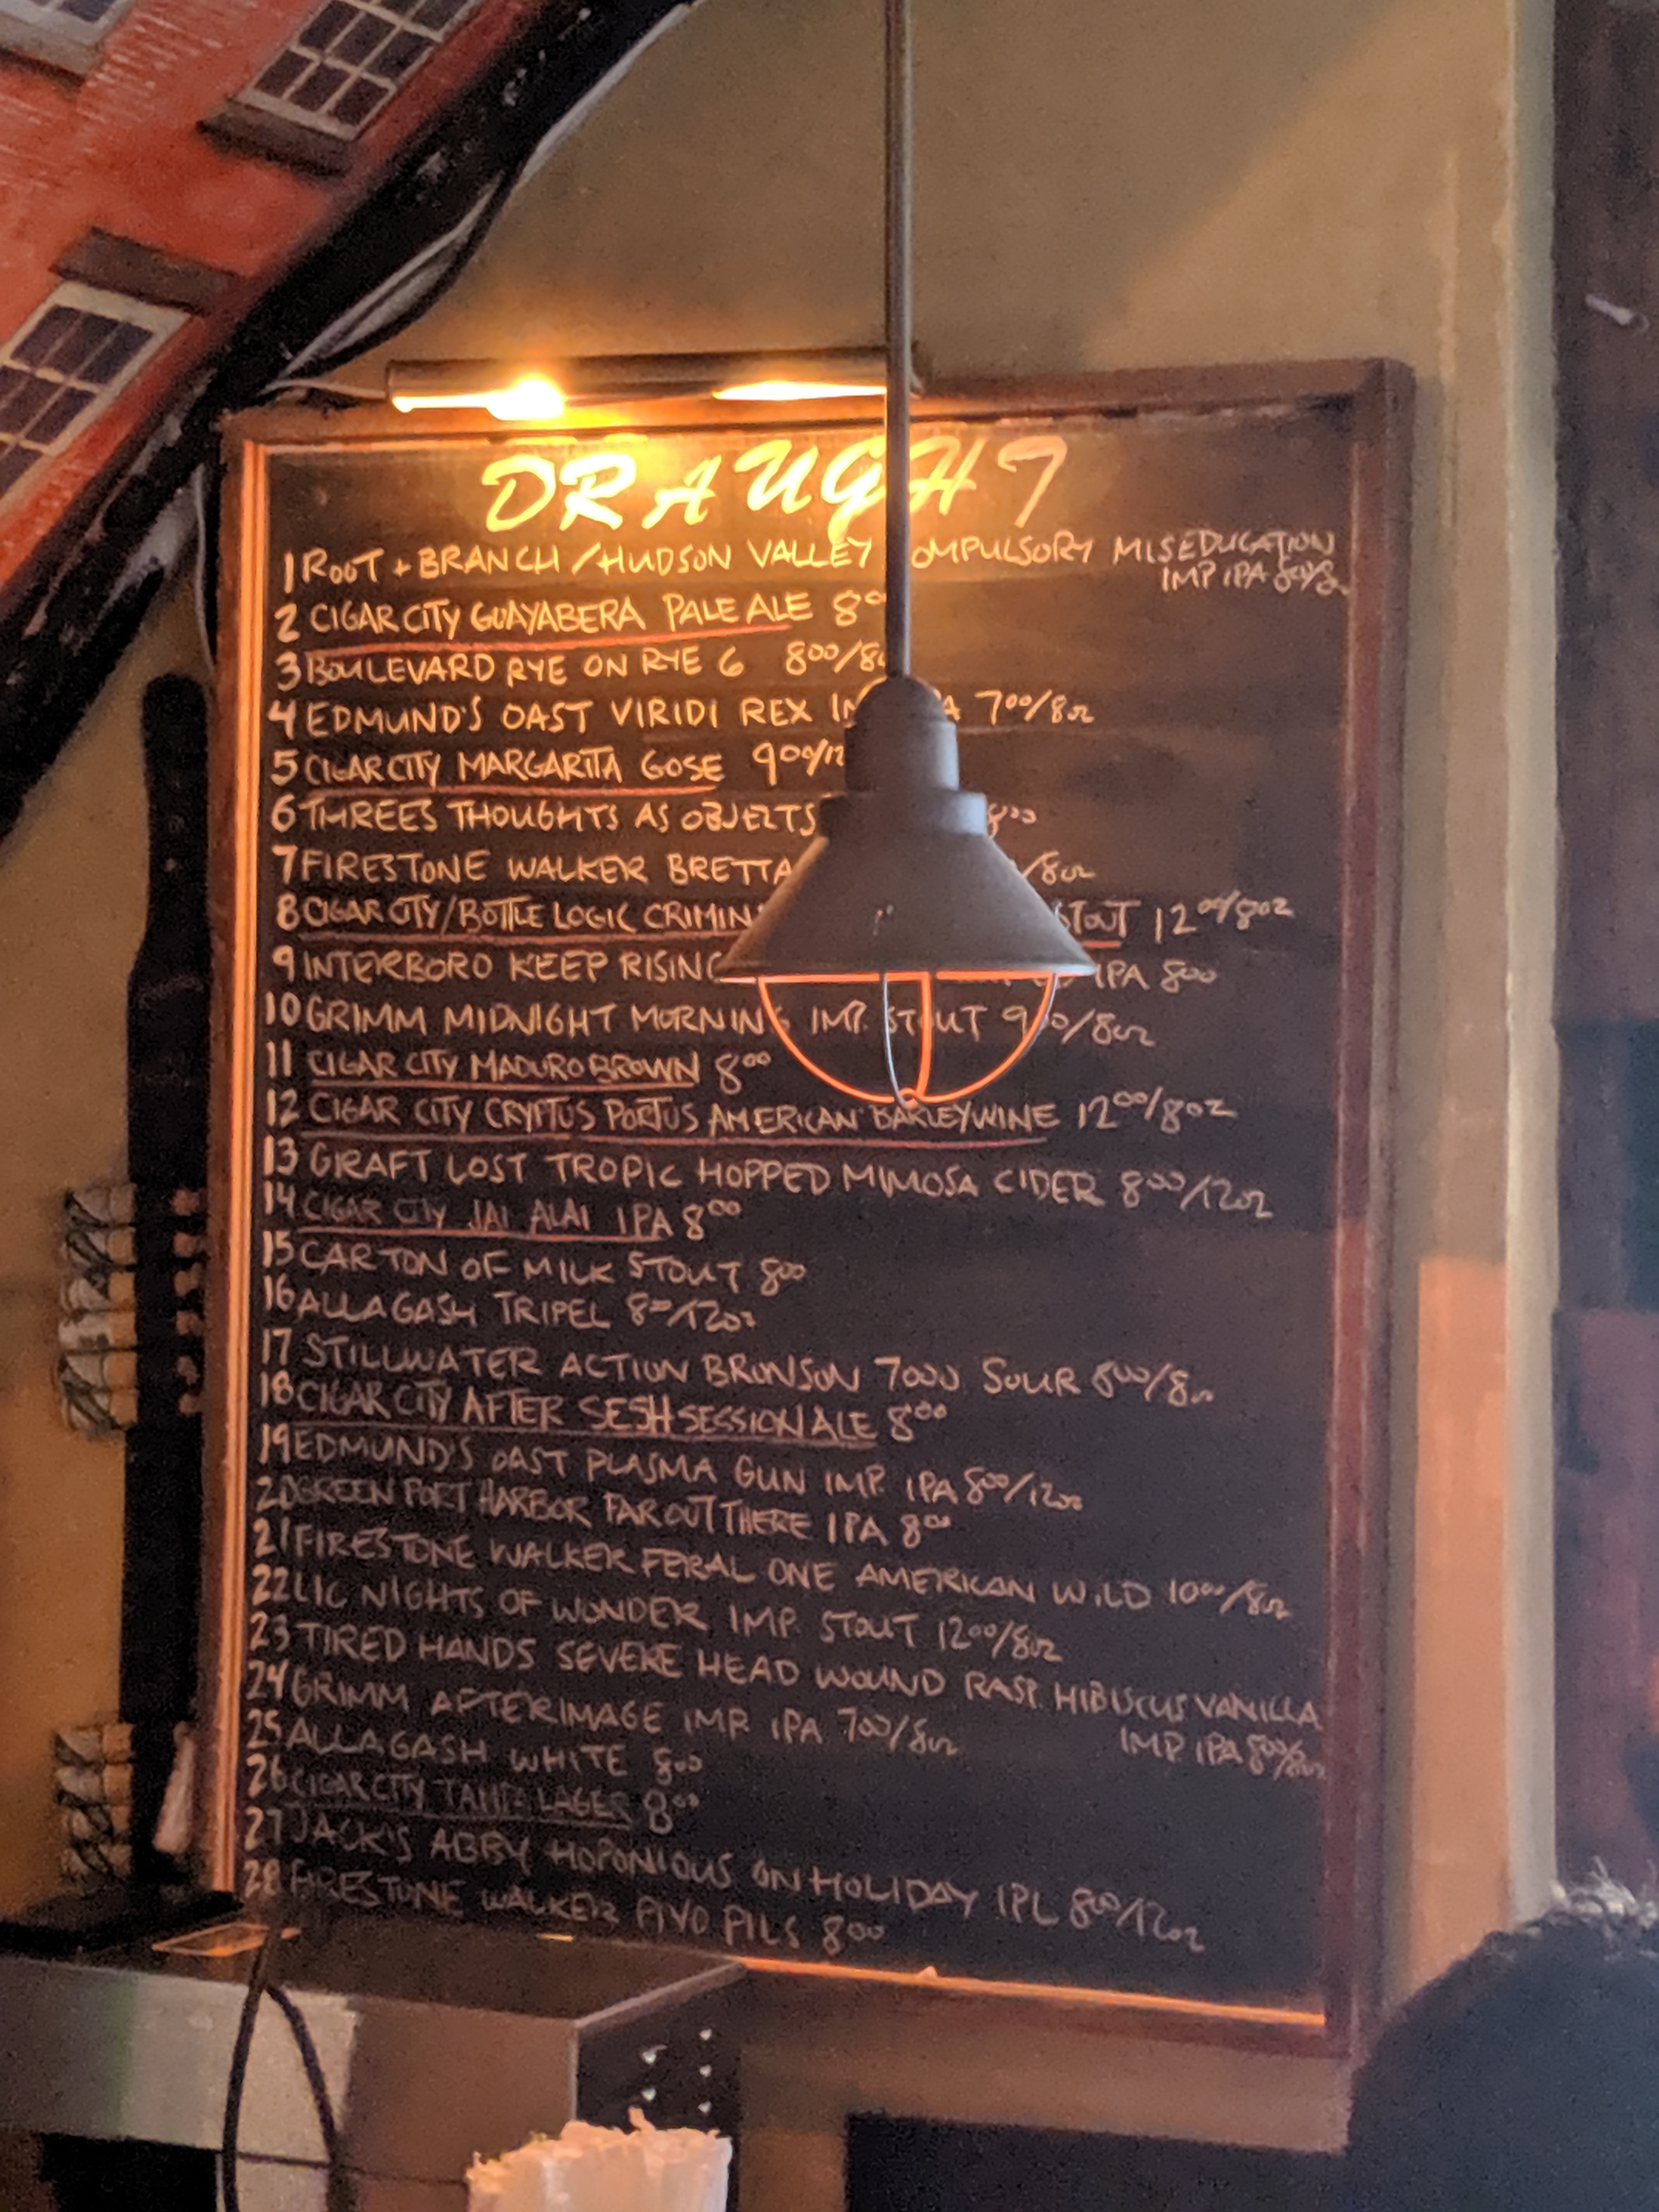 DRAUGHT
1 ROOT + BRANCH / HUDSON VALLEY OMPULSORY MISEDUCATION
IMP IPA 800/8oz
2 CIGAR CITY GUAYABERA PALE ALE 800
3 BOULEVARD RYE ON RYE 6 800/8
4 EDMUND'S OAST VIRIDI REX 700/8oz
5 CIGAR CITY MARGARITA GOSE 900/12
6 THREES THOUGHTS AS OBJECTS 800
7 FIRESTONE WALKER BRETTA /8oz
8 CIGAR CITY/BOTTLE LOGIC CRIMIN STOUT 1200/8oz
9 INTERBORO KEEP RISING IPA 800
10 GRIMM MIDNIGHT MORNING IMP. STOUT 900/8oz
11 CIGAR CITY MADURO BROWN 800
12 CIGAR CITY CRYPTUS PORTUS AMERICAN BARLEYWINE 1200/8oz
13 GRAFT LOST TROPIC HOPPED MIMOSA CIDER 800/12oz
14 CIGAR CITY JAI ALAI IPA 800
15 CARTON OF MILK STOUT 800
16 ALLAGASH TRIPEL 800/12oz
17 STILLWATER ACTION BRONSON 7000 SOUR 800/8oz
18 CIGAR CITY AFTER SESH SESSION ALE 800
19 EDMUND'S OAST PLASMA GUN IMP. IPA 800/12oz
20 GREENPORT HARBOR FAR OUT THERE IPA 800
21 FIRESTONE WALKER FERAL ONE AMERICAN WILD 1000/8oz
22 LIC NIGHTS OF WONDER IMP. STOUT 1200/8oz
23 TIRED HANDS SEVERE HEAD WOUND RASP. HIBISCUS VANILLA
IMP. IPA 800/8oz
24 GRIMM AFTERIMAGE IMP. IPA 700/8oz
25 ALLAGASH WHITE 800
26 CIGAR CITY LAGER 800
27 JACK'S ABBY HOPONIOUS ON HOLIDAY IPL 800/12oz
28 FIRESTONE WALKER PIVO PILS 800